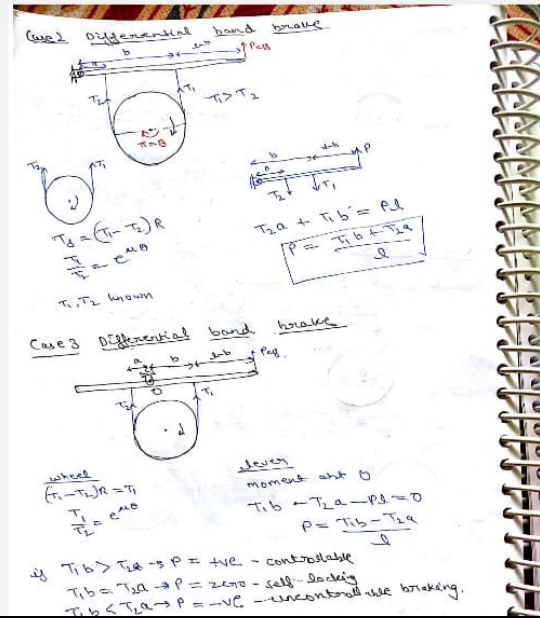 Case 2 Differential band brake
a b l-b Peff
T2 T1 T1 > T2
π = θ
T2 T1
b l-b P
a
T2 T1
Td = (T1 - T2) R
T1/T2 = e^μθ
T1, T2 known
T2a + T1b = Pl
P = (T1b + T2a)/l
Case 3 Differential band brake
a b l-b Peff.
O
T2 T1
wheel
(T1 - T2)R = T1
T1/T2 = e^μθ
lever
moment abt O
T1b - T2a - Pl = 0
P = (T1b - T2a)/l
if T1b > T2a → P = +ve - controllable
T1b = T2a → P = zero - self-locking
T1b < T2a → P = -ve - uncontrollable braking.